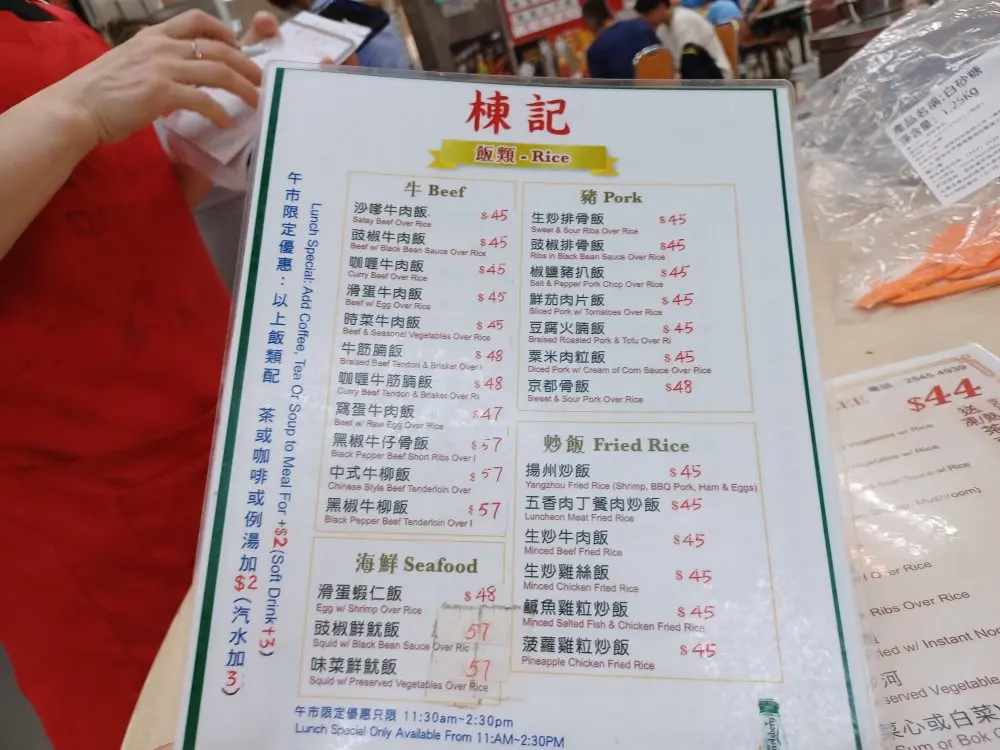 棟記
飯類 - Rice
牛 Beef
沙嗲牛肉飯 $45
Satay Beef Over Rice
豉椒牛肉飯 $45
Beef w/ Black Bean Sauce Over Rice
咖喱牛肉飯 $45
Curry Beef Over Rice
滑蛋牛肉飯 $45
Beef w/ Egg Over Rice
時菜牛肉飯 $45
Beef & Seasonal Vegetables Over Rice
牛筋腩飯 $48
Braised Beef Tendon & Brisket Over
咖喱牛筋腩飯 $48
Curry Beef Tendon & Brisket Over Ri
窩蛋牛肉飯 $47
Beef w/ Raw Egg Over Rice
黑椒牛仔骨飯 $57
Black Pepper Beef Short Ribs Over
中式牛柳飯 $57
Chinese Style Beef Tenderloin Over
黑椒牛柳飯 $57
Black Pepper Beef Tenderloin Over
海鮮 Seafood
滑蛋蝦仁飯 $48
Egg w/ Shrimp Over Rice
豉椒鮮魷飯 57
Squid w/ Black Bean Sauce Over Ric
味菜鮮魷飯 57
Squid w/ Preserved Vegetables Over Rice
豬 Pork
生炒排骨飯 $45
Sweet & Sour Ribs Over Rice
豉椒排骨飯 $45
Ribs in Black Bean Sauce Over Rice
椒鹽豬扒飯 $45
Salt & Pepper Pork Chop Over Rice
鮮茄肉片飯 $45
Sliced Pork w/ Tomatoes Over Rice
豆腐火腩飯 $45
Braised Roasted Pork & Tofu Over Ri
粟米肉粒飯 $45
Diced Pork w/ Cream of Corn Sauce Over Rice
京都骨飯 $48
Sweet & Sour Pork Over Rice
炒飯 Fried Rice
揚州炒飯 $45
Yangzhou Fried Rice (Shrimp, BBQ Pork, Ham & Eggs)
五香肉丁餐肉炒飯 $45
Luncheon Meat Fried Rice
生炒牛肉飯 $45
Minced Beef Fried Rice
生炒雞絲飯 $45
Minced Chicken Fried Rice
鹹魚雞粒炒飯 $45
Minced Salted Fish & Chicken Fried Rice
菠蘿雞粒炒飯 $45
Pineapple Chicken Fried Rice
午市限定優惠：以上飯類配 茶或咖啡或例湯加$2 (汽水加3)
Lunch Special: Add Coffee, Tea Or Soup to Meal For +$2 (Soft Drink +3)
午市限定優惠只限 11:30am~2:30pm
Lunch Special Only Available From 11:AM~2:30PM
產品名稱:白砂糖
淨含量: 1.25Kg
電話 2545 4939
$44
Vegetables w/ Rice
w/ Rice
w/ Rice
Mushroom)
Over Rice
Ribs Over Rice
ried w/ Instant Noo
河
served Vegetable
菜心或白菜
or Bok